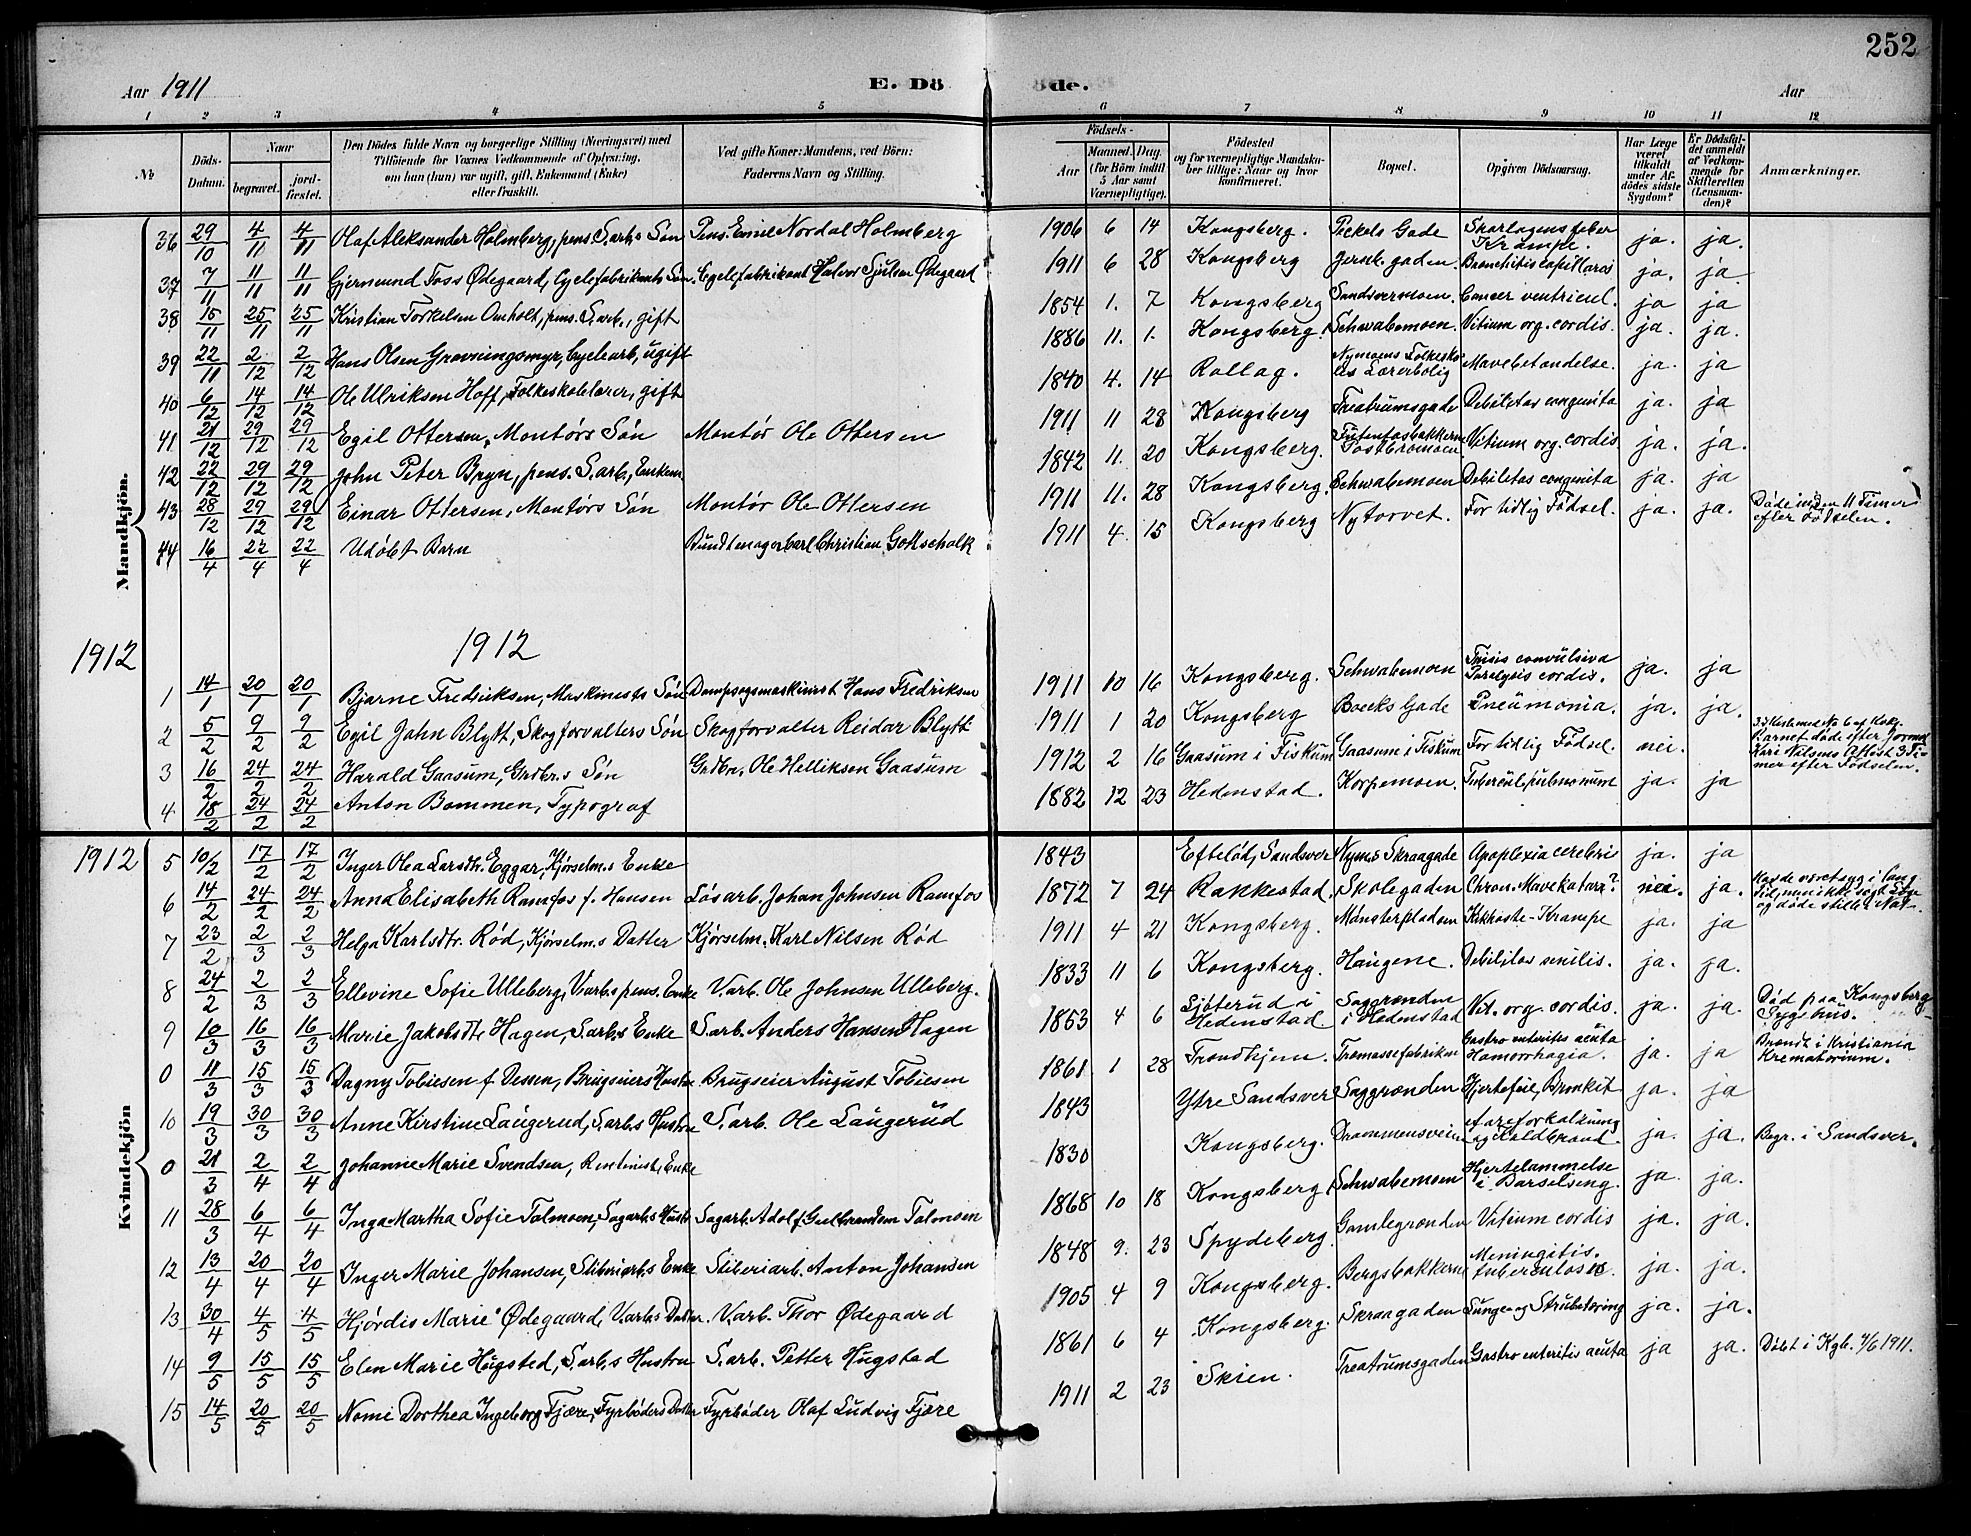 252
Aar 1911 E. Dö de. Aar
1 2 3 4 5 6 7 8 9 10 11 12
No. Döds-Datum. Naar begravet. jord-fæstet. Den Dödes fulde Navn og borgerlige Stilling (Næringsvei) med Tilföiende for Voxnes Vedkommende af Oplysning, om han (hun) var ugift, gift, Enkemand (Enke) eller fraskilt. Ved gifte Koner: Mandens, ved Börn: Faderens Navn og Stilling. Födsels- Aar Maaned. Dag. (for Börn indtil 5 Aar samt Værnepligtige). Födested og for værnepligtige Mandskaber tillige: Naar og hvor konfirmeret. Bopæl. Opgiven Dödsaarsag. Har Læge været tilkaldt under Afdödes sidste Sygdom? Er Dödsfaldet anmeldt af Vedkommende for Skifteretten (Lensmanden)? Anmærkninger.
Mandkjön.
36 29/10 4/11 4/11 Olaf Aleksander Holmberg, pens. S.arb.s Søn Pens. Emil Nordal Holmberg 1906 6 14 Kongsberg. Peckels Gade Skarlagensfeber Krampe. ja. ja.
37 7/11 11/11 11/11 Gjermund Foss Ødegaard, Cyclefabrikants Søn. Cyclefabrikant Halvor Ødegaard 1911 6 28 Kongsberg gaden. Bronchitis ja. ja
38 15/11 25/11 25/11 Kristian Torkelsen Omholt, pens. S.arb., gift 1854 1. 7 Kongsberg Sandsvermoen. Cancer ventricul. ja ja
39 22/11 2/12 2/12 Hans Olsen Gravningsmyr, Cyclearb, ugift 1886 11. 1. Kongsberg. Schwabemoen. Vitium org. cordis. ja. ja.
40 6/12 14/12 14/12 Ole Ulriksen Hoff, Folkeskolelærer, gift 1840 4. 14 Rollag. Nymoens Lærerbolig Mavebetændelse. ja. ja
41 21/12 29/12 29/12 Egil Ottersen, Montørs Søn Montør Ole Ottersen 1911 11 28 Kongsberg Treatrumsgade Debilitas congenita ja. ja
42 22/12 29/12 29/12 John Peter Bryn, pens. S.arb., Enkem. 1842 11. 20 Kongsberg. Vitium org. cordis ja. ja.
43 28/12 29/12 29/12 Einar Ottersen, Montørs Søn Montør Ole Ottersen 1911 11. 28 Kongsberg. Schwabemoen Debilitas congenita ja. ja
44 16/4 22/4 22/4 Udøbt Barn Bundtmager Carl Christian Gottschalk 1911 4 15 Kongsberg Nytorvet. For tidlig Fødsel. ja. ja. Døde 11 Timer efter Fødselen.
1912 1912
1 14/1 20/1 20/1 Bjarne Fredriksen, Maskinists Søn Dampsagsmaskinist Hans Fredriksen 1911 10 16 Kongsberg. Schwabemoen Tusis convulsiva Paralysis cordis. ja. ja
2 5/2 9/2 9/2 Egil John Blytt, Skogforvalters Søn Skogforvalter Reidar Blytt 1911 1 20 Kongsberg Boecks Gade Pneumonia. ja. ja.
3 16/2 24/2 24/2 Harald Gaasum, Grdbr.s Søn Grdbr. Ole Helliksen Gaasum 1912 2 16 Gaasum i Fiskum Gaasum i Fiskum For tidlig Fødsel. nei. Barnet døde efter Jormod Kari Nilsens Attest 3 Timer efter Fødselen.
4 18/2 24/2 24/2 Anton Bommen, Typograf 1882 12 23 Hedenstad. Korpemoen. Tubercul. pulmonum ja. ja
1912
Kvindekjön
5 10/2 17/2 17/2 Inger Olea Larsdtr. Eggar, Kjørselm.s Enke 1843 Eftelød, Sandsver Nym.s Skraagade Apoplexia cerebri ja. ja
6 14/2 24/2 24/2 Anna Elisabeth Ramfos f. Hansen Løsarb. Johan Johnsen Ramfos 1872 7 24 Rakkestad. Skolegaden Chron. Mavekatarr? nei. ja. Havde været syg i lang Tid, men ikke søgt Læge og døde stille Nat.
7 23/2 2/3 2/3 Helga Karlsdtr. Rød, Kjørselm.s Datter Kjørselm. Karl Nilsen Rød 1911 4 21 Kongsberg. Mønsterpladsen Kikhoste-Krampe ja. ja
8 24/2 2/3 2/3 Ellevine Sofie Ulleberg, V.arb.s pens. Enke V.arb. Ole Johnsen Ulleberg. 1833 11 6 Kongsberg. Haugene. Debilitas senilis. ja. ja.
9 10/3 16/3 16/3 Marie Jakobsdtr Hagen, S.arb.s Enke S.arb. Anders Hansen Hagen 1853 4 6 i Hedenstad Saggrænden i Hedenstad Vit. org. cordis. ja. ja. Død paa Kongsberg Sygehus.
0 11/3 15/3 15/3 Dagny Tobiesen f. Dessen, Brugseiers Hustru Brugseier August Tobiesen 1861 1 28 Trondhjem. Træmassefabriken Gastro enterites acuta Hæmorrhagia. ja. ja Brændt i Kristiania Krematorium.
10 19/3 30/3 30/3 Anne Kirstine Laugerud, S.arb.s Hustru S.arb. Ole Laugerud 1843 Ytre Sandsver Saggrænden Hjertefeil, Bronkit ja. ja
0 21/3 2/4 2/4 Johanne Marie Svendsen, Enke 1830 Kongsberg. Drammensveien og Koldbrand. ja. ja. Begr. i Sandsver.
11 28/3 6/4 6/4 Inga Martha Sofie Talmoen, Sagarb.s Hustr. Sagarb. Adolf Gulbrandsen Talmoen 1868 10 18 Kongsberg Schwabemoen Hjertelammelse i Barselseng. ja. ja.
12 13/4 20/4 20/4 Inger Marie Johansen, Sliberiarb.s Enke Sliberiarb. Anton Johansen 1848 9. 23 Spydeberg. Gamlegrænden Vitium cordis ja. ja.
13 30/4 4/5 4/5 Hjørdis Marie Ødegaard, V.arb.s Datter. V.arb. Thor Ødegaard 1905 4 9 Kongsberg. Bergsbakkerne Meningitis tuberculosa. ja. ja.
14 9/5 15/5 15/5 Elen Marie Hugstad, S.arb.s Hustru S.arb. Petter Hugstad 1861 6 4 Kongsberg. Skraagaden Lunge- og Strubetæring ja. ja.
15 14/5 20/5 20/5 Nomi Dorthea Ingeborg Fjære, Fyrbøders Datter Fyrbøder Olaf Ludvig Fjære 1911 2 23 Skien. Treatrumsgaden Gastro enteritis acuta ja ja. Døbt i Kgb. 4/6 1911.